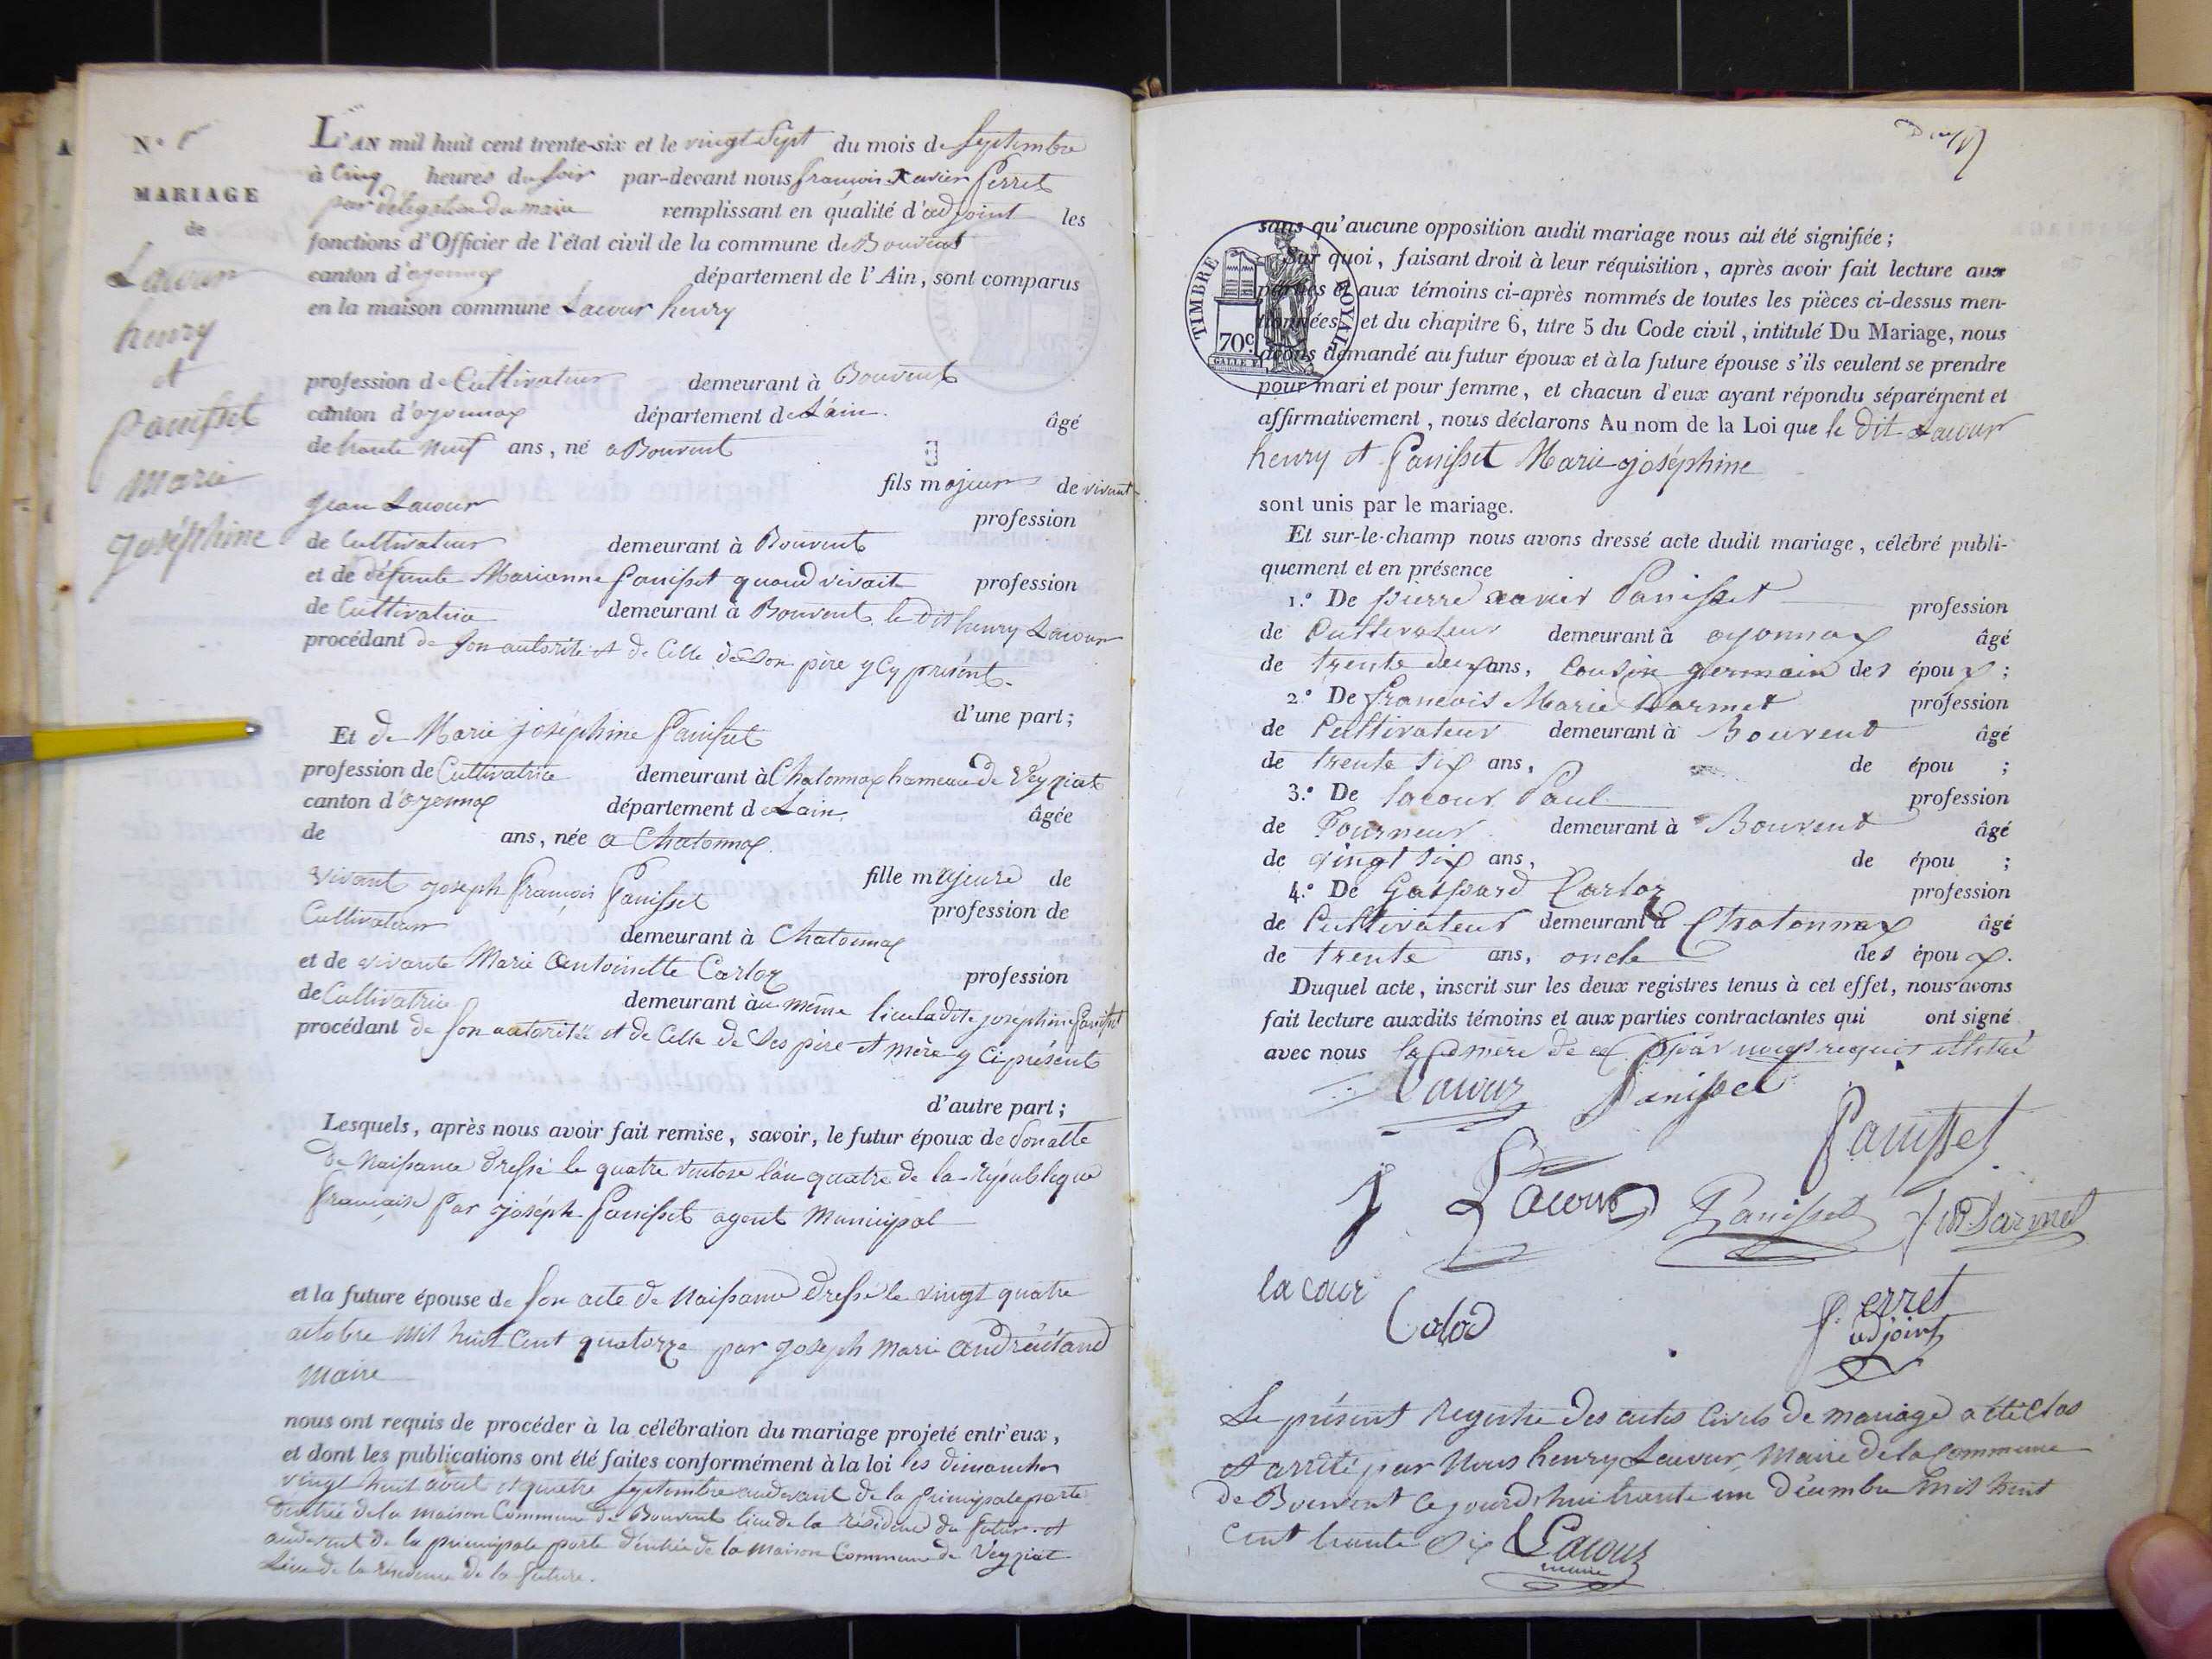 N.°
MARIAGE
de
Lacour
henry
et
panisset
marie
joséphine
L'AN mil huit cent trente-six et le vingt Sept du mois de Septembre
à Cinq heures du Soir par-devant nous françois Xavier Perret
par délégation du maire remplissant en qualité d'adjoint les
fonctions d'Officier de l'état civil de la commune de Bouvent
canton d'oyonnax département de l'Ain, sont comparus
en la maison commune Lacour henry
profession de Cultivateur demeurant à Bouvent
canton d'oyonnax département de L'ain. âgé
de trente neuf ans, né a Bouvent
fils majeur de vivant
jean Lacour profession
de Cultivateur demeurant à Bouvent
et de défunte Marianne Panisset quand vivait profession
de Cultivatrice demeurant à Bouvent. le dit henry Lacour
procédant de son autorité et de Celle de son père y Cy présent.
d'une part;
Et de Marie joséphine Panisset
profession de Cultivatrice demeurant à Chatonnax hameau de Veyziat
canton d'oyonnax département de Lain âgée
de ans, née a Chatonnax.
fille majeure de
vivant joseph françois Panisset profession de
Cultivateur demeurant à Chatonnax
et de vivante Marie Antoinette Carloz profession
de Cultivatrice demeurant au même lieu ladite josephine Panisset
procédant de son autorité et de Celle de Ses père et mère y Ci présents
d'autre part;
Lesquels, après nous avoir fait remise, savoir, le futur époux de Son acte
de Naissance dressé le quatre Ventose l'an quatre de la république
française par joséph Panisset agent Municipal
et la future épouse de Son acte de Naissance dressé le vingt quatre
octobre mil huit Cent quatorze par joseph Marie
Maire
nous ont requis de procéder à la célébration du mariage projeté entr'eux,
et dont les publications ont été faites conformément à la loi les dimanches
vingt huit août et quatre Septembre audevant de la principale porte
d'entrée de la maison Commune de Bouvent lieu de la résidence du futur. et
audevant de la principale porte d'entrée de la maison Commune de Veyziat
Lieu de la résidence de la future.
sans qu'aucune opposition audit mariage nous ait été signifiée;
Sur quoi, faisant droit à leur réquisition, après avoir fait lecture aux
parties et aux témoins ci-après nommés de toutes les pièces ci-dessus men-
tionnées, et du chapitre 6, titre 5 du Code civil, intitulé Du Mariage, nous
avons demandé au futur époux et à la future épouse s'ils veulent se prendre
pour mari et pour femme, et chacun d'eux ayant répondu séparément et
affirmativement, nous déclarons Au nom de la Loi que le dit Lacour
henry et Panisset Marie joséphine
TIMBRE ROYAL
70 c.
sont unis par le mariage.
Et sur-le-champ nous avons dressé acte dudit mariage, célébré publi-
quement et en présence
1.° De pierre xavier Panisset profession
de Cultivateur demeurant à oyonnax âgé
de trente deux ans, Cousin germain des époux;
2.° De francois Marie Darmet profession
de Cultivateur demeurant à Bouvent âgé
de trente six ans, de épou ;
3.° De lacour Paul profession
de Tourneur demeurant à Bouvent âgé
de vingt six ans, de épou ;
4.° De Gaspard Carloz profession
de Cultivateur demeurant à Chatonnax âgé
de trente ans, oncle des époux.
Duquel acte, inscrit sur les deux registres tenus à cet effet, nous avons
fait lecture auxdits témoins et aux parties contractantes qui ont signé
avec nous mère de requis
Lacour Panisset
Panisset
J Lacour Panisset Darmet
la cour
P. erret
adjoint
Le présent registre des actes Civils de mariage a été Clos
et arrêté par Nous henry Lacour, Maire de la Commune
de Bouvent Ce jourd'hui trante un décembre mil huit
Cent trante Six Lacour
maire